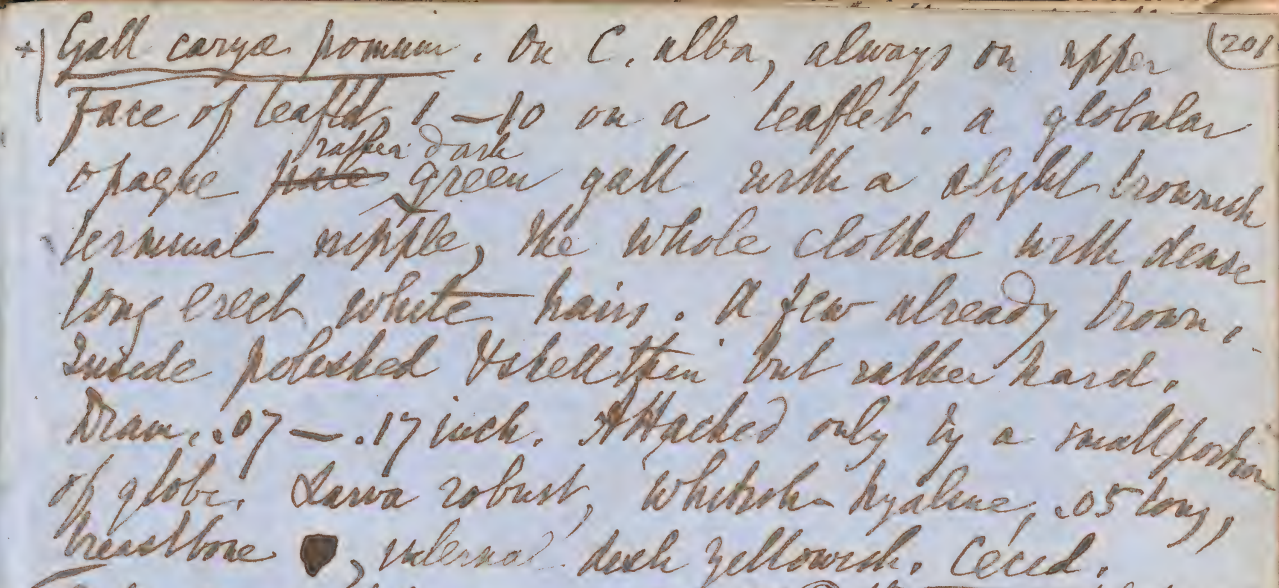 + Gall caryæ pomum. On C. alba, always on upper (201
face of leaflet, 1 – 10 on a leaflet. a globular
rather dark
opaque pale green gall with a slight brownish
terminal nipple, the whole clothed with dense
long erect white hairs. A few already brown.
Inside polished & shell thin but rather hard.
Diam. .07 — .17 inch. Attached only by a small portion
of globe. Larva robust, whitish hyaline, .05 long,
breastbone , internal yellowish. Cecid.